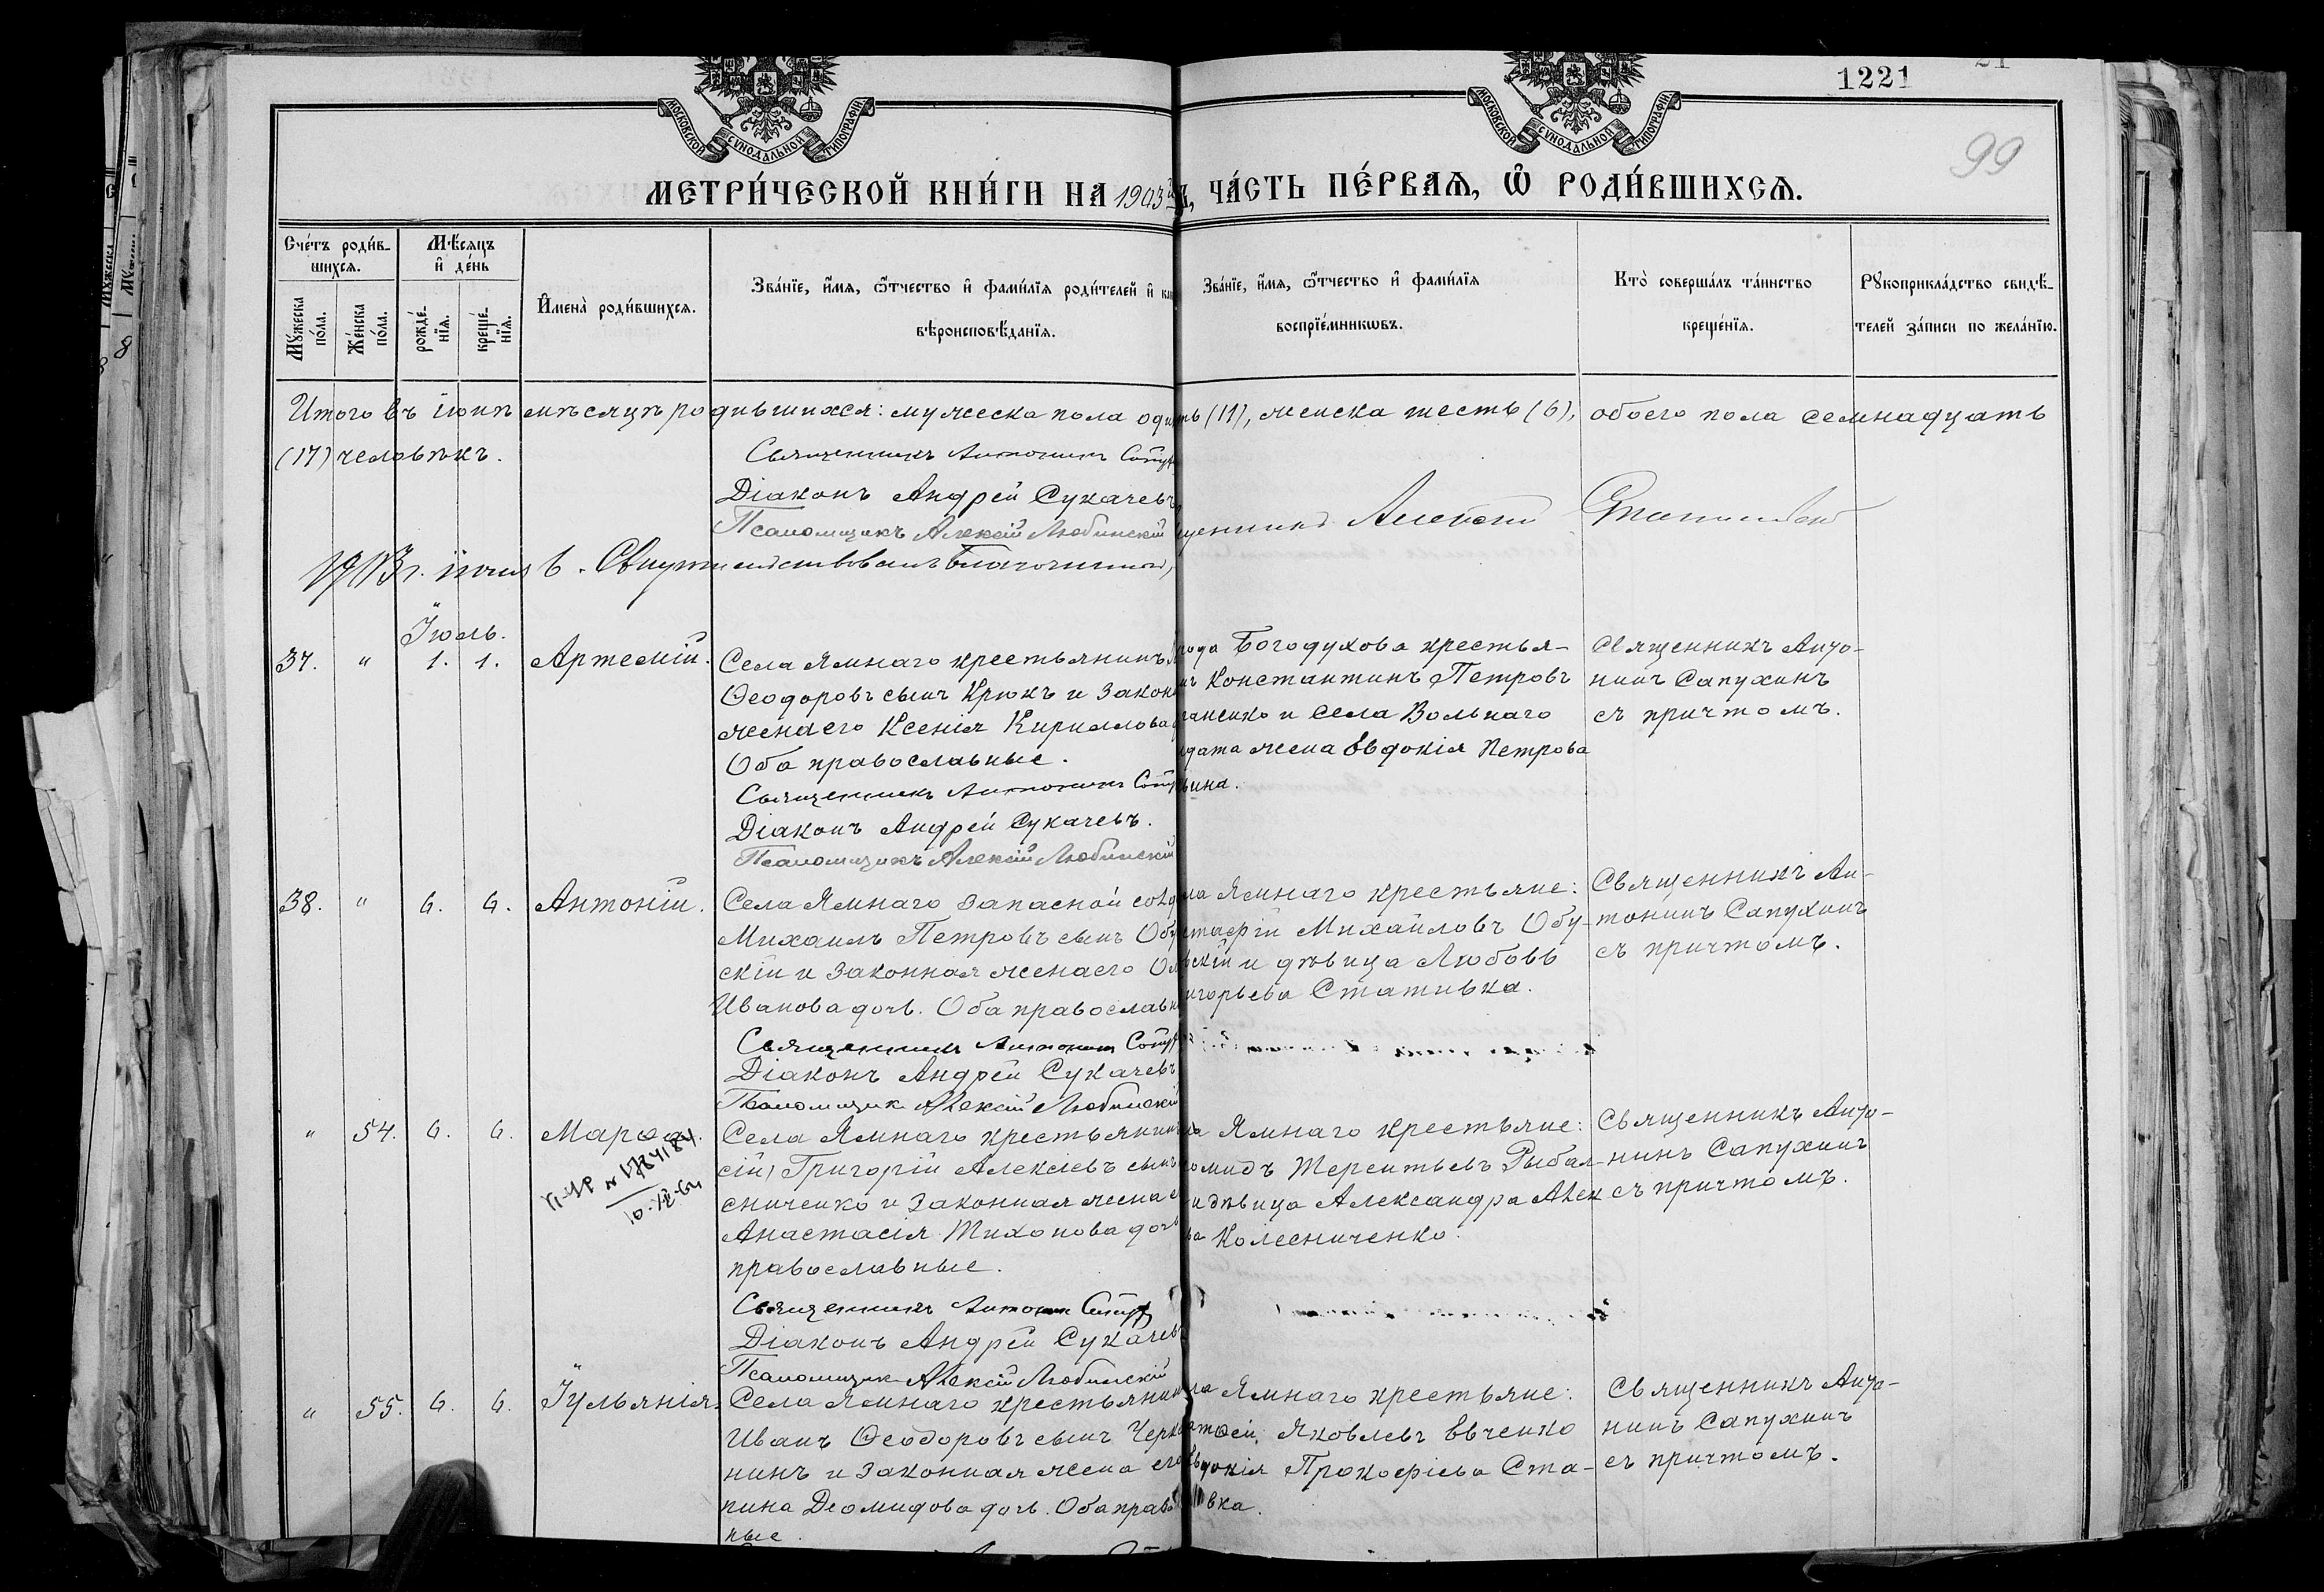 МОСКОВСКОЙ СѴНОДАЛЬНОЙ ТИПОГРАФІИ
МОСКОВСКОЙ СѴНОДАЛЬНОЙ ТИПОГРАФІИ
1221
99
МЕТРИ́ЧЕСКОЙ КНИ́ГИ НА 1903й
ЧА́СТЬ ПЕ́РВАѦ, Ѽ РОДИ́ВШИХСѦ.
Сче́тъ роди́в-
шихсѧ.
Мꙋ́жеска по́ла.
Же́нска по́ла.
Мѣ́сѧцъ
и҆ де́нь
рожде́-
нїѧ.
креще́-
нїѧ.
И҆мена̀ роди́вшихсѧ.
Зва́нїе, и҆́мѧ, ѻ҆́тчество и҆ фами́лїѧ роди́телей и҆
вѣроисповѣ́данїѧ.
Зва́нїе, и҆́мѧ, ѻ҆́тчество и҆ фами́лїѧ
воспрїе́мникѡвъ.
Кто̀ соверша́лъ та́инство
креще́нїѧ.
Рꙋкоприкла́дство свидѣ́-
телей за́писи по жела́нїю.
Итого въ іюнѣ мѣсяцѣ родившихся: мужеска пола (11), женска шесть (6), обоего пола семнадцать
(17) человѣкъ.
Священникъ Антонинъ
Діаконъ Андрей Сукачевъ
Псаломщикъ Алексій Любинскій
1903 г. 6.
Іюль.
37. " 1. 1. Артемій.
Села Ямнаго крестьянинъ
Ѳеодоровъ сынъ Крюкъ и закон
жена его Ксенія Кириллова
Оба православные.
Священникъ Антонинъ
Діаконъ Андрей Сукачевъ.
Псаломщикъ Алексій Любинскій
рода Богодухова крестья-
нъ Константинъ Петровъ
ганенко и села Вольнаго
дата жена Евдокія Петрова
ина.
Священникъ Анто-
нинъ Сапухинъ
съ причтомъ.
38. " 6. 6. Антоній.
Села Ямнаго запасной солд
Михаилъ Петровъ сынъ Обу
скій и законная жена его Ол
Иванова дочь. Оба православн
Священникъ Антонинъ
Діаконъ Андрей Сукачевъ
Псаломщикъ Алексій Любинскій
ла Ямнаго крестьяне:
Михайловъ Обу-
скій и дѣвица Любовь
игорьева Стативка.
Священникъ Ан-
тонинъ Сапухинъ
съ причтомъ.
" 54. 6. 6. Марѳа.
Села Ямнаго крестьянинъ
сій) Григорій Алексіевъ сынъ
сниченко и законная жена
Анастасія Тихонова дочь
православные.
Священникъ Антонинъ
Діаконъ Андрей Сукачевъ
Псаломщикъ Алексій Любинскій
ла Ямнаго крестьяне:
омидъ Терентьевъ Рыбал-
и дѣвица Александра Алек
ва Колесниченко.
Священникъ Анто-
нинъ Сапухинъ
съ причтомъ.
" 55. 6. 6. Іульянія.
Села Ямнаго крестьянинъ
Иванъ Ѳеодоровъ сынъ Черка
нинъ и законная жена его
пина Деомидова дочь. Оба право
ные.
ла Ямнаго крестьяне:
Яковлевъ Евченко
Евдокія Прокофіева Ста-
вка.
Священникъ Анто-
нинъ Сапухинъ
съ причтомъ.